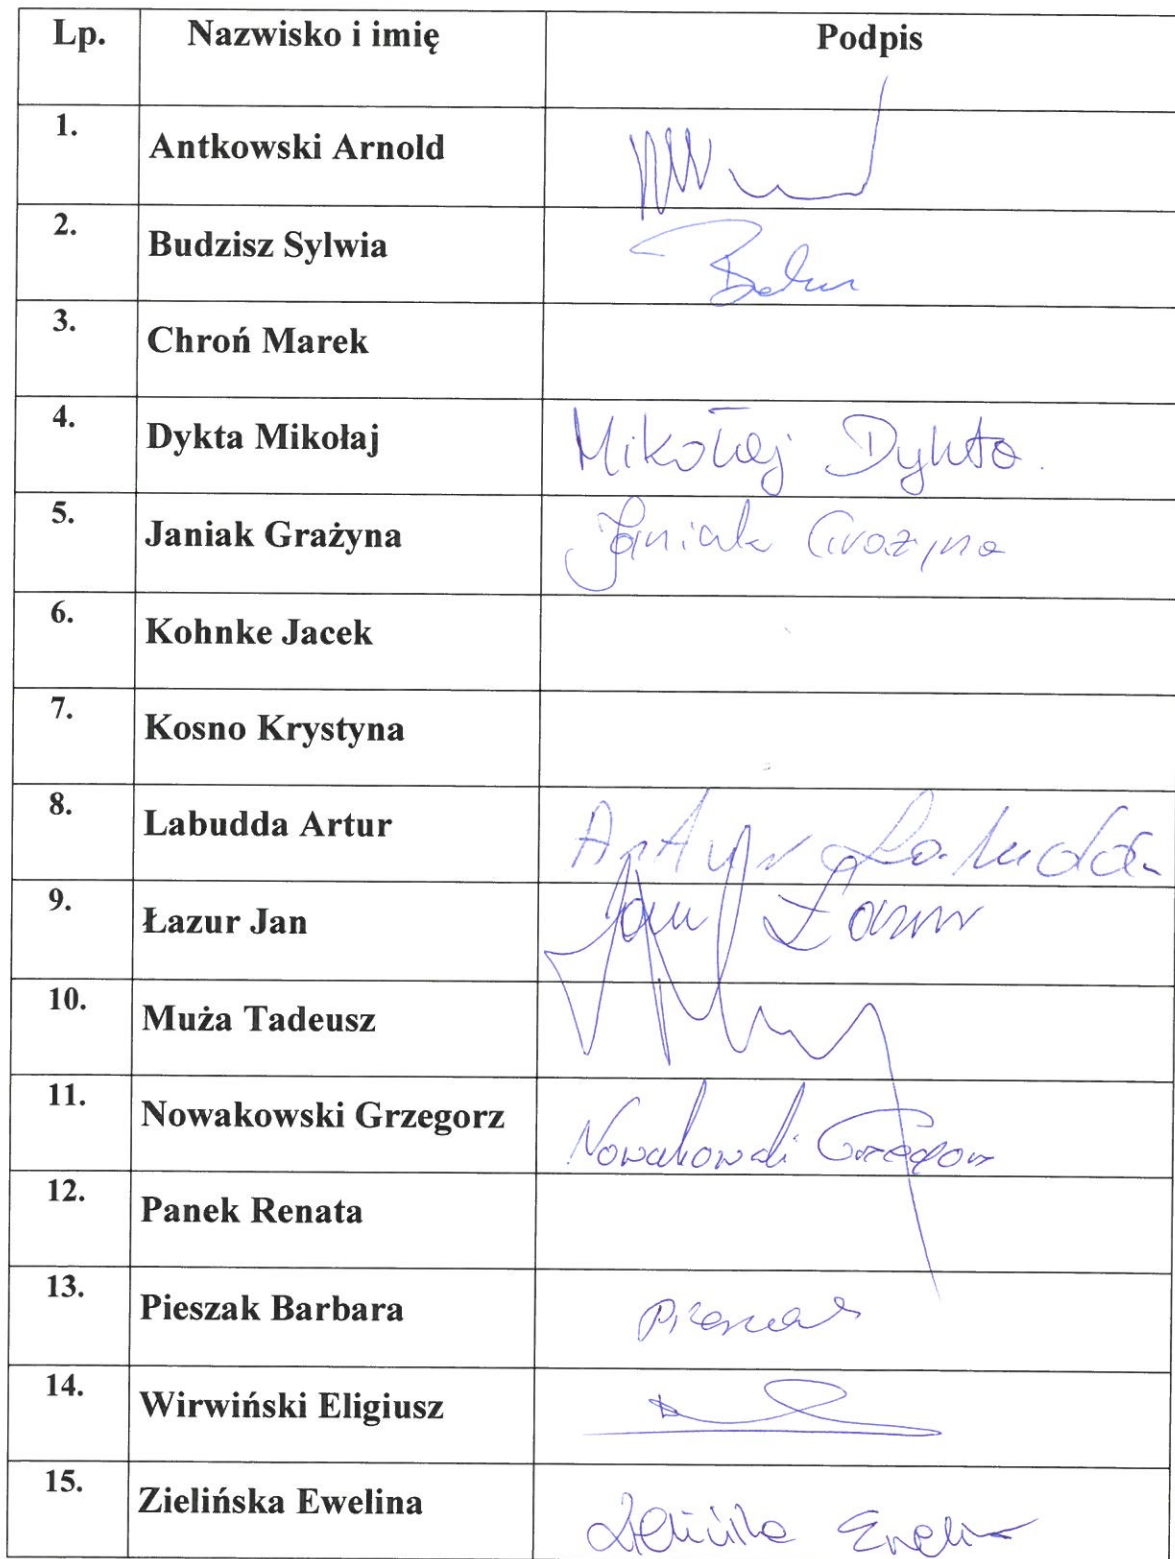 Lp. Nazwisko i imię Podpis
1. Antkowski Arnold
2. Budzisz Sylwia
3. Chroń Marek
4. Dykta Mikołaj Mikołaj Dykta.
5. Janiak Grażyna Janiak Grażyna
6. Kohnke Jacek
7. Kosno Krystyna
8. Labudda Artur Artur Labudda
9. Łazur Jan Jan Łazur
10. Muża Tadeusz
11. Nowakowski Grzegorz Nowakowski Grzegorz
12. Panek Renata
13. Pieszak Barbara Pieszak
14. Wirwiński Eligiusz
15. Zielińska Ewelina Zielińska Ewelina